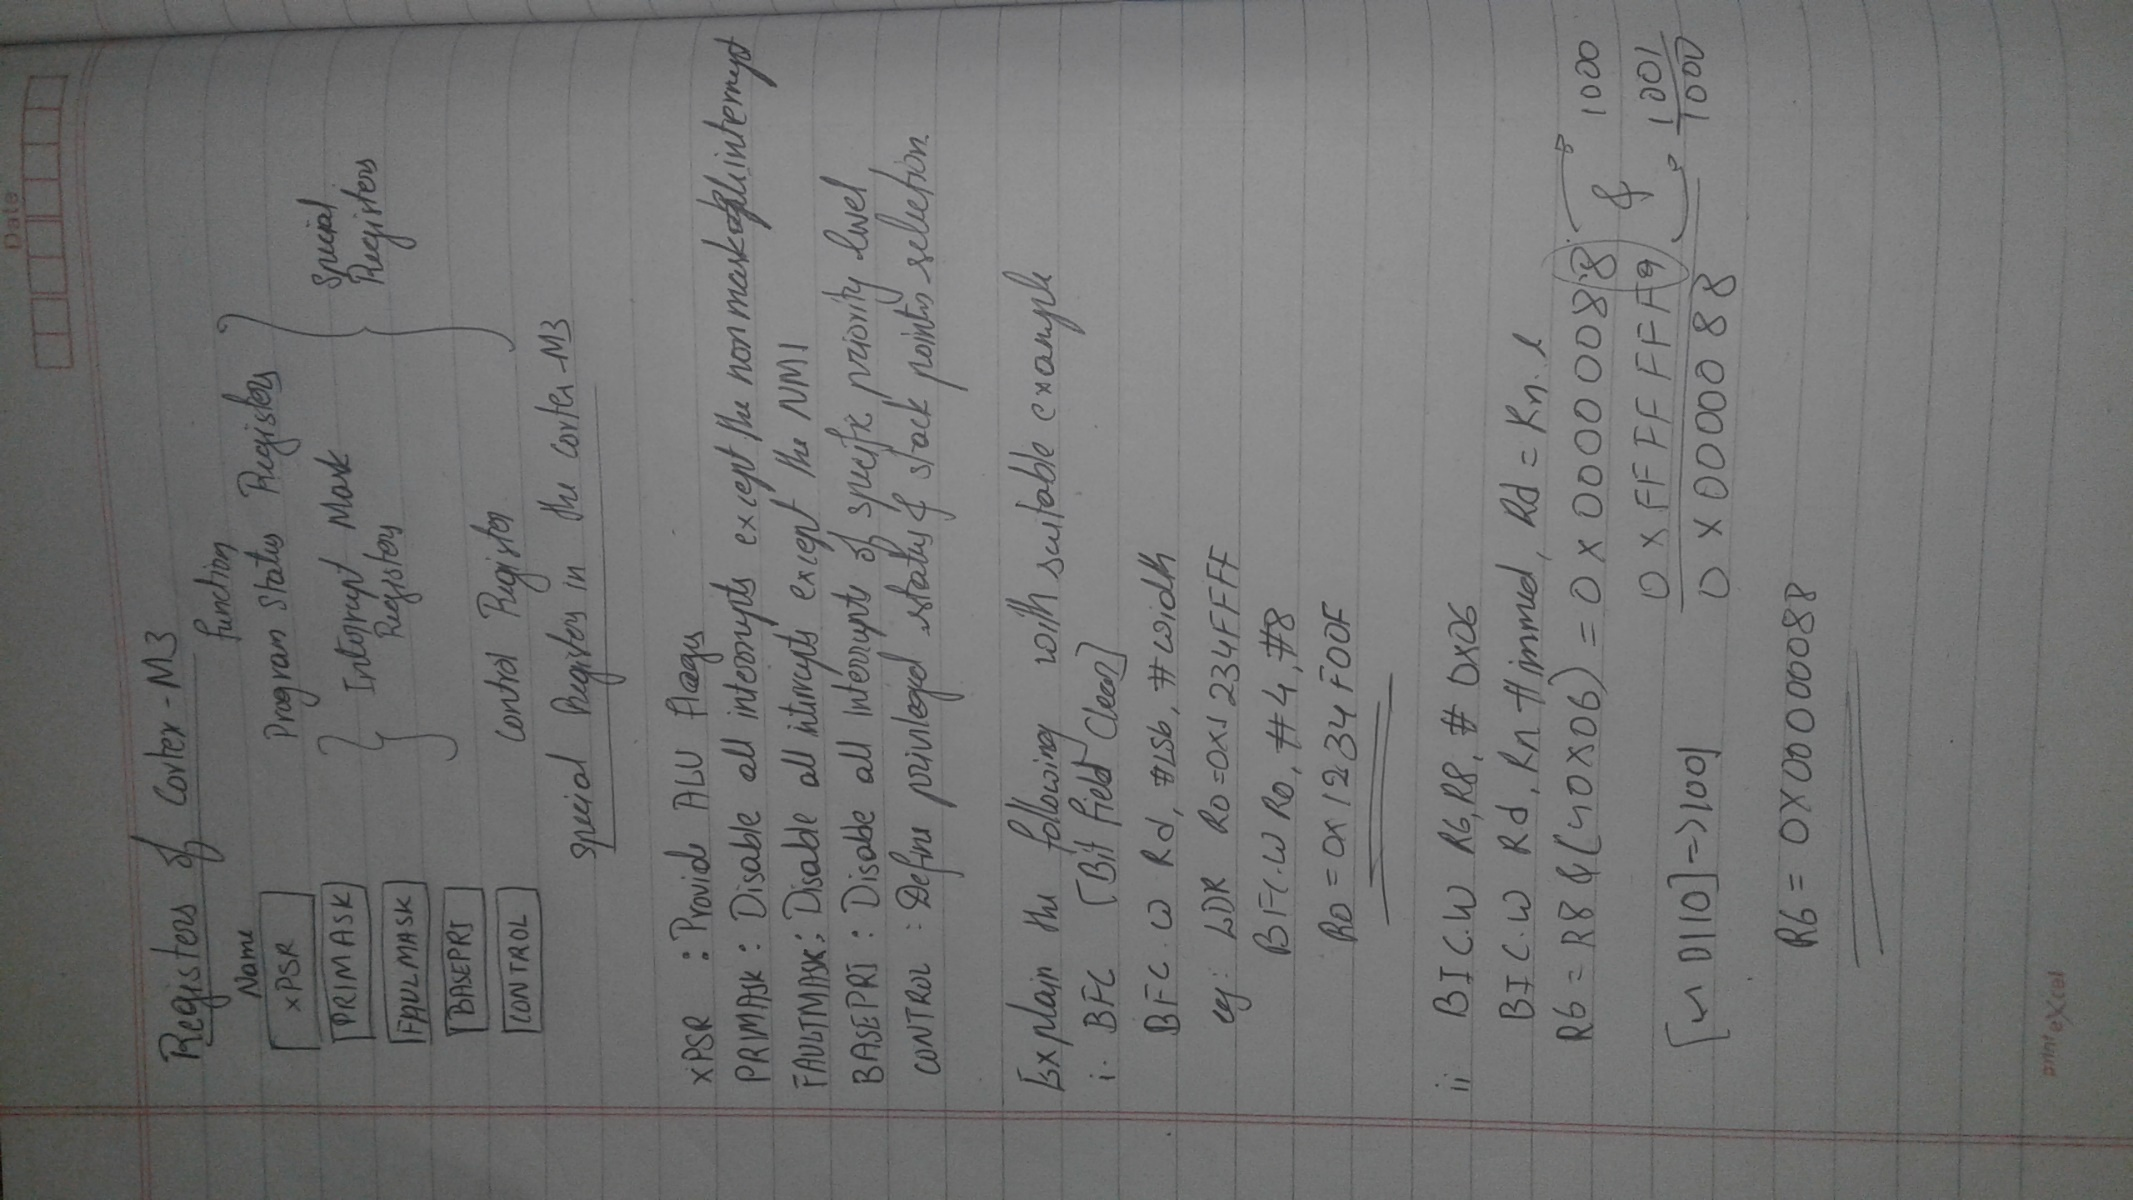 Date
Registers of Cortex-M3
Name function
xPSR Program Status Registers
PRIMASK Interrupt Mask Special
FAULMASK Registers Registers
BASEPRI
CONTROL Control Register
Special Registers in the cortex-M3
xPSR : Provide ALU flags
PRIMASK : Disable all interrupts except the nonmaskable interrupt
FAULTMASK : Disable all interrupts except the NMI
BASEPRI : Disable all Interrupts of specific priority level
CONTROL : Define privileged status & stack pointer selection.
Explain the following with suitable example
i. BFC [Bit Field Clear]
BFC.W Rd, #Lsb, #width
eg: LDR R0=0x1234FFFF
BFC.W R0, #4, #8
R0 = 0x1234F00F
ii BIC.W R6,R8, #0x06
BIC.W Rd, Rn #immed, Rd = Rn.
R6 = R8 & (~0x06) = 0x00000088 & 1000
0xFFFFFFA9 1001
[~0110] -> 1001 0x00000088 1000
R6 = 0x00000088
print eXcel